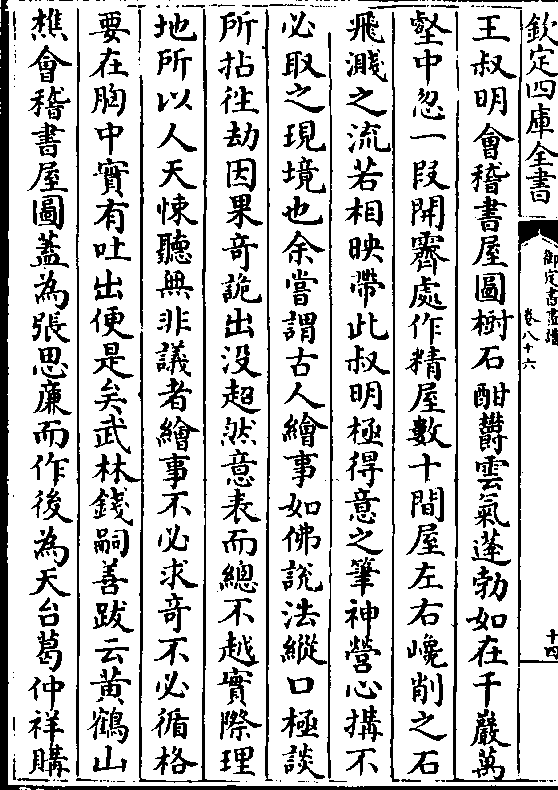 欽定四庫全書
御定書畫譜
卷八十六
十四
王叔明會稽書屋圖樹石酣欝雲氣蓬勃如在千巖萬
壑中忽一段開霽處作精屋數十間屋左右巉削之石
飛濺之流若相映帶此叔明極得意之筆神營心搆不
必取之現境也余嘗謂古人繪事如佛說法縱口極談
所拈徃劫因果奇詭出没超然意表而總不越實際理
地所以人天悚聽無非議者繪事不必求奇不必循格
要在胸中實有吐出便是矣武林錢嗣善跋云黄鶴山
樵會稽書屋圖蓋為張思廉而作後為天台葛仲祥購